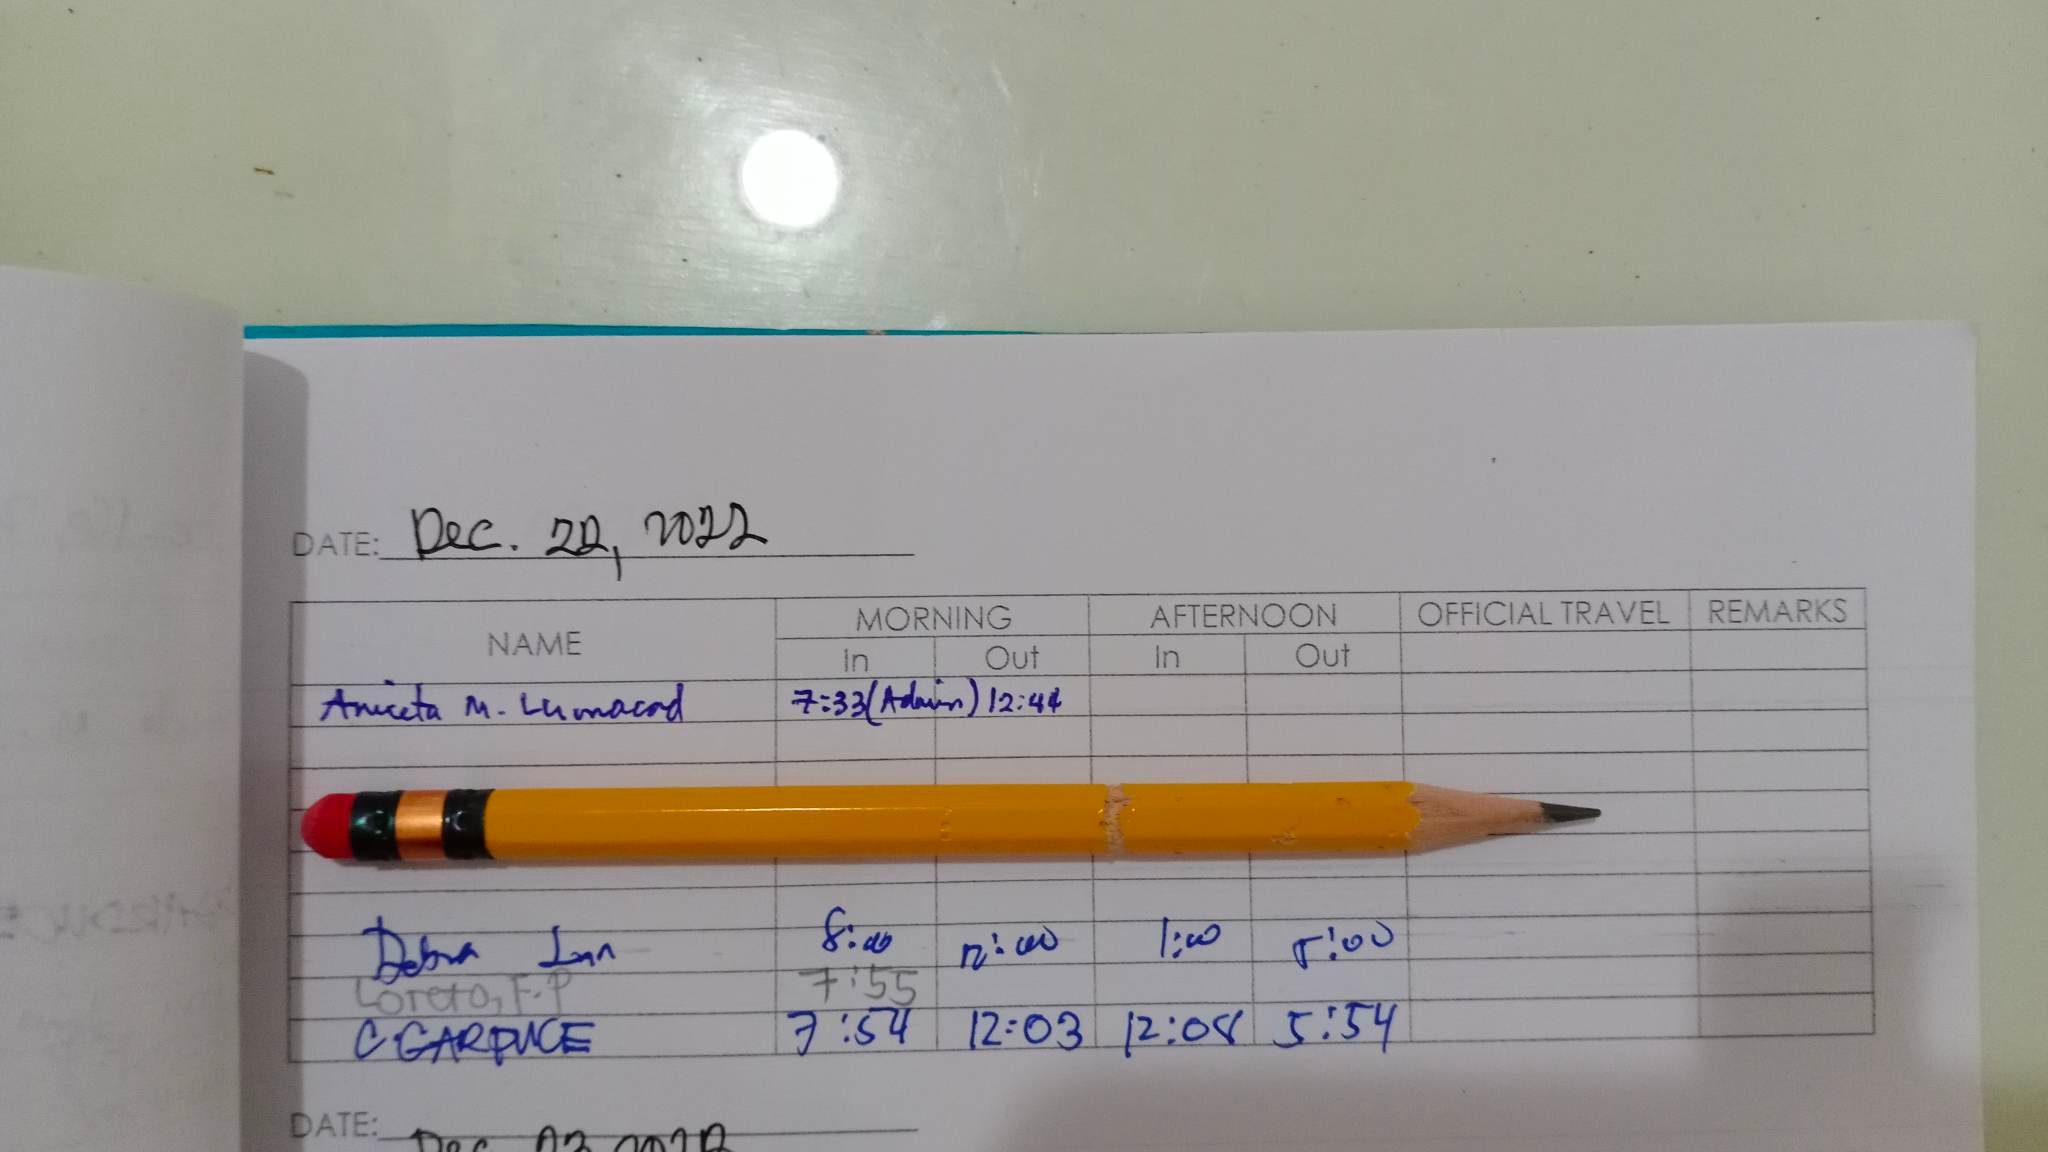 DATE: Dec. 22, 2022
NAME MORNING AFTERNOON OFFICIAL TRAVEL REMARKS
In Out In Out
Aniceta M. Lumacad 7:33 (Admin) 12:44
Debra Lnn 8:00 12:00 1:00 5:00
Loreto, F.P 7:55
C GARDUCE 7:54 12:03 12:08 5:54
DATE: Dec 23 2022